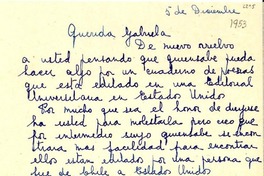 5 de Diciembre
1953
Querida Gabriela
De nuevo vuelvo
a usted pensando que quensabe pueda
hacer algo por un cuaderno de poemas
que está editado en una Editorial
Universitaria en Estados Unidos
Por mucho que sea el honor de dirijirse
ha usted para molestarla pero creo que
por intermedio suyo quensabe se encon
trara mas facilidad para encontrar
ellos estan editado por una persona que
fue de Chile a Estados Unidos